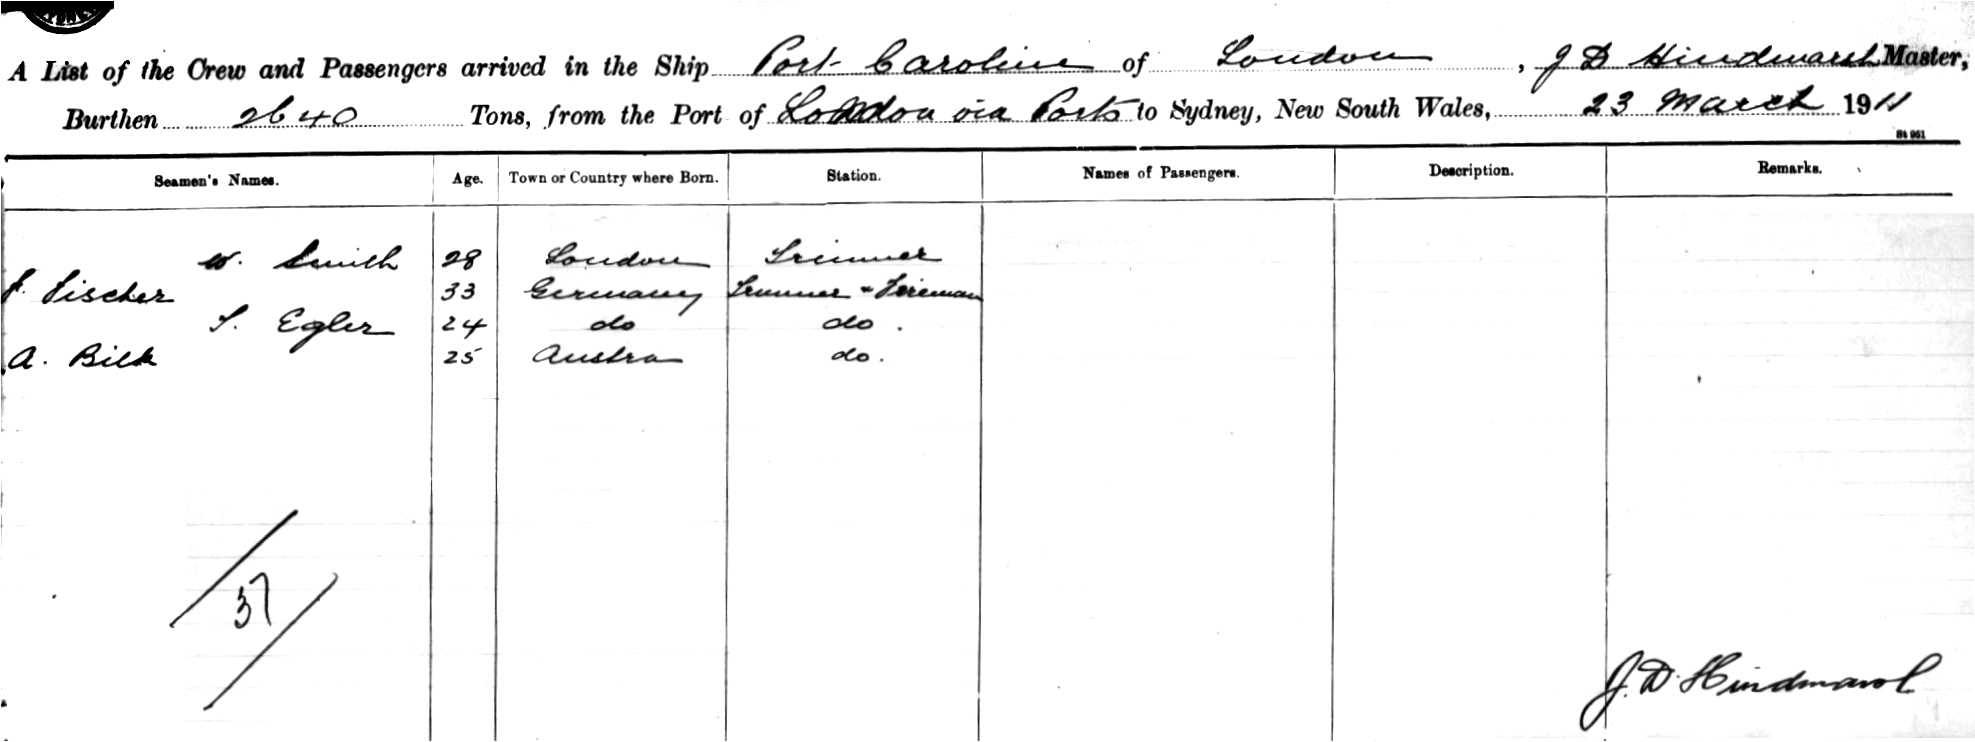 A List of the Crew and Passengers arrived in the Ship Port Caroline of London, J D Hindmarsh Master,
Burthen 2640 Tons, from the Port of London via Ports to Sydney, New South Wales, 23 March 1911
Seamen's Names. Age. Town or Country where Born. Station. Names of Passengers. Description. Remarks.
W. Smith 28 London Trimmer
Fischer 33 Germany Trimmer & Fireman
Egler 24 do do.
A. Bilk 25 Austra do.
37
J. D. Hindmarsh